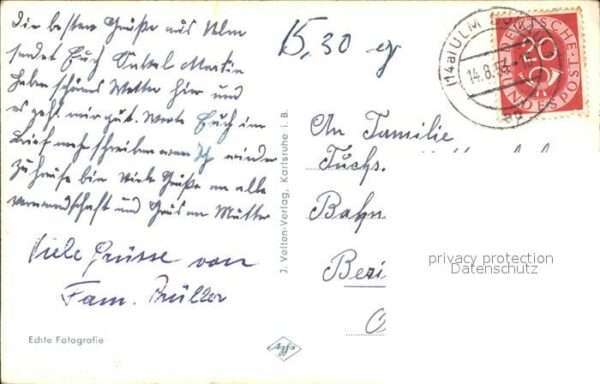 Die besten Grüße aus Ulm
sendet Euch Onkel Martin
haben schönes Wetter hier und
es geht mir gut. Werde Euch im
Brief mehr schreiben wenn ich wieder
zuhause bin Viele Grüße an alle
Verwandschaft und Gruß an Mutter
Viele Grüsse von
Fam. Müller
Echte Fotografie
J. Velten-Verlag, Karlsruhe i. B.
Agfa
15,30
(14a) ULM
14.8.53
DEUTSCHE
20
BUNDESPOST
An Familie
Fuchs.
Bahn
Bezi
privacy protection
Datenschutz